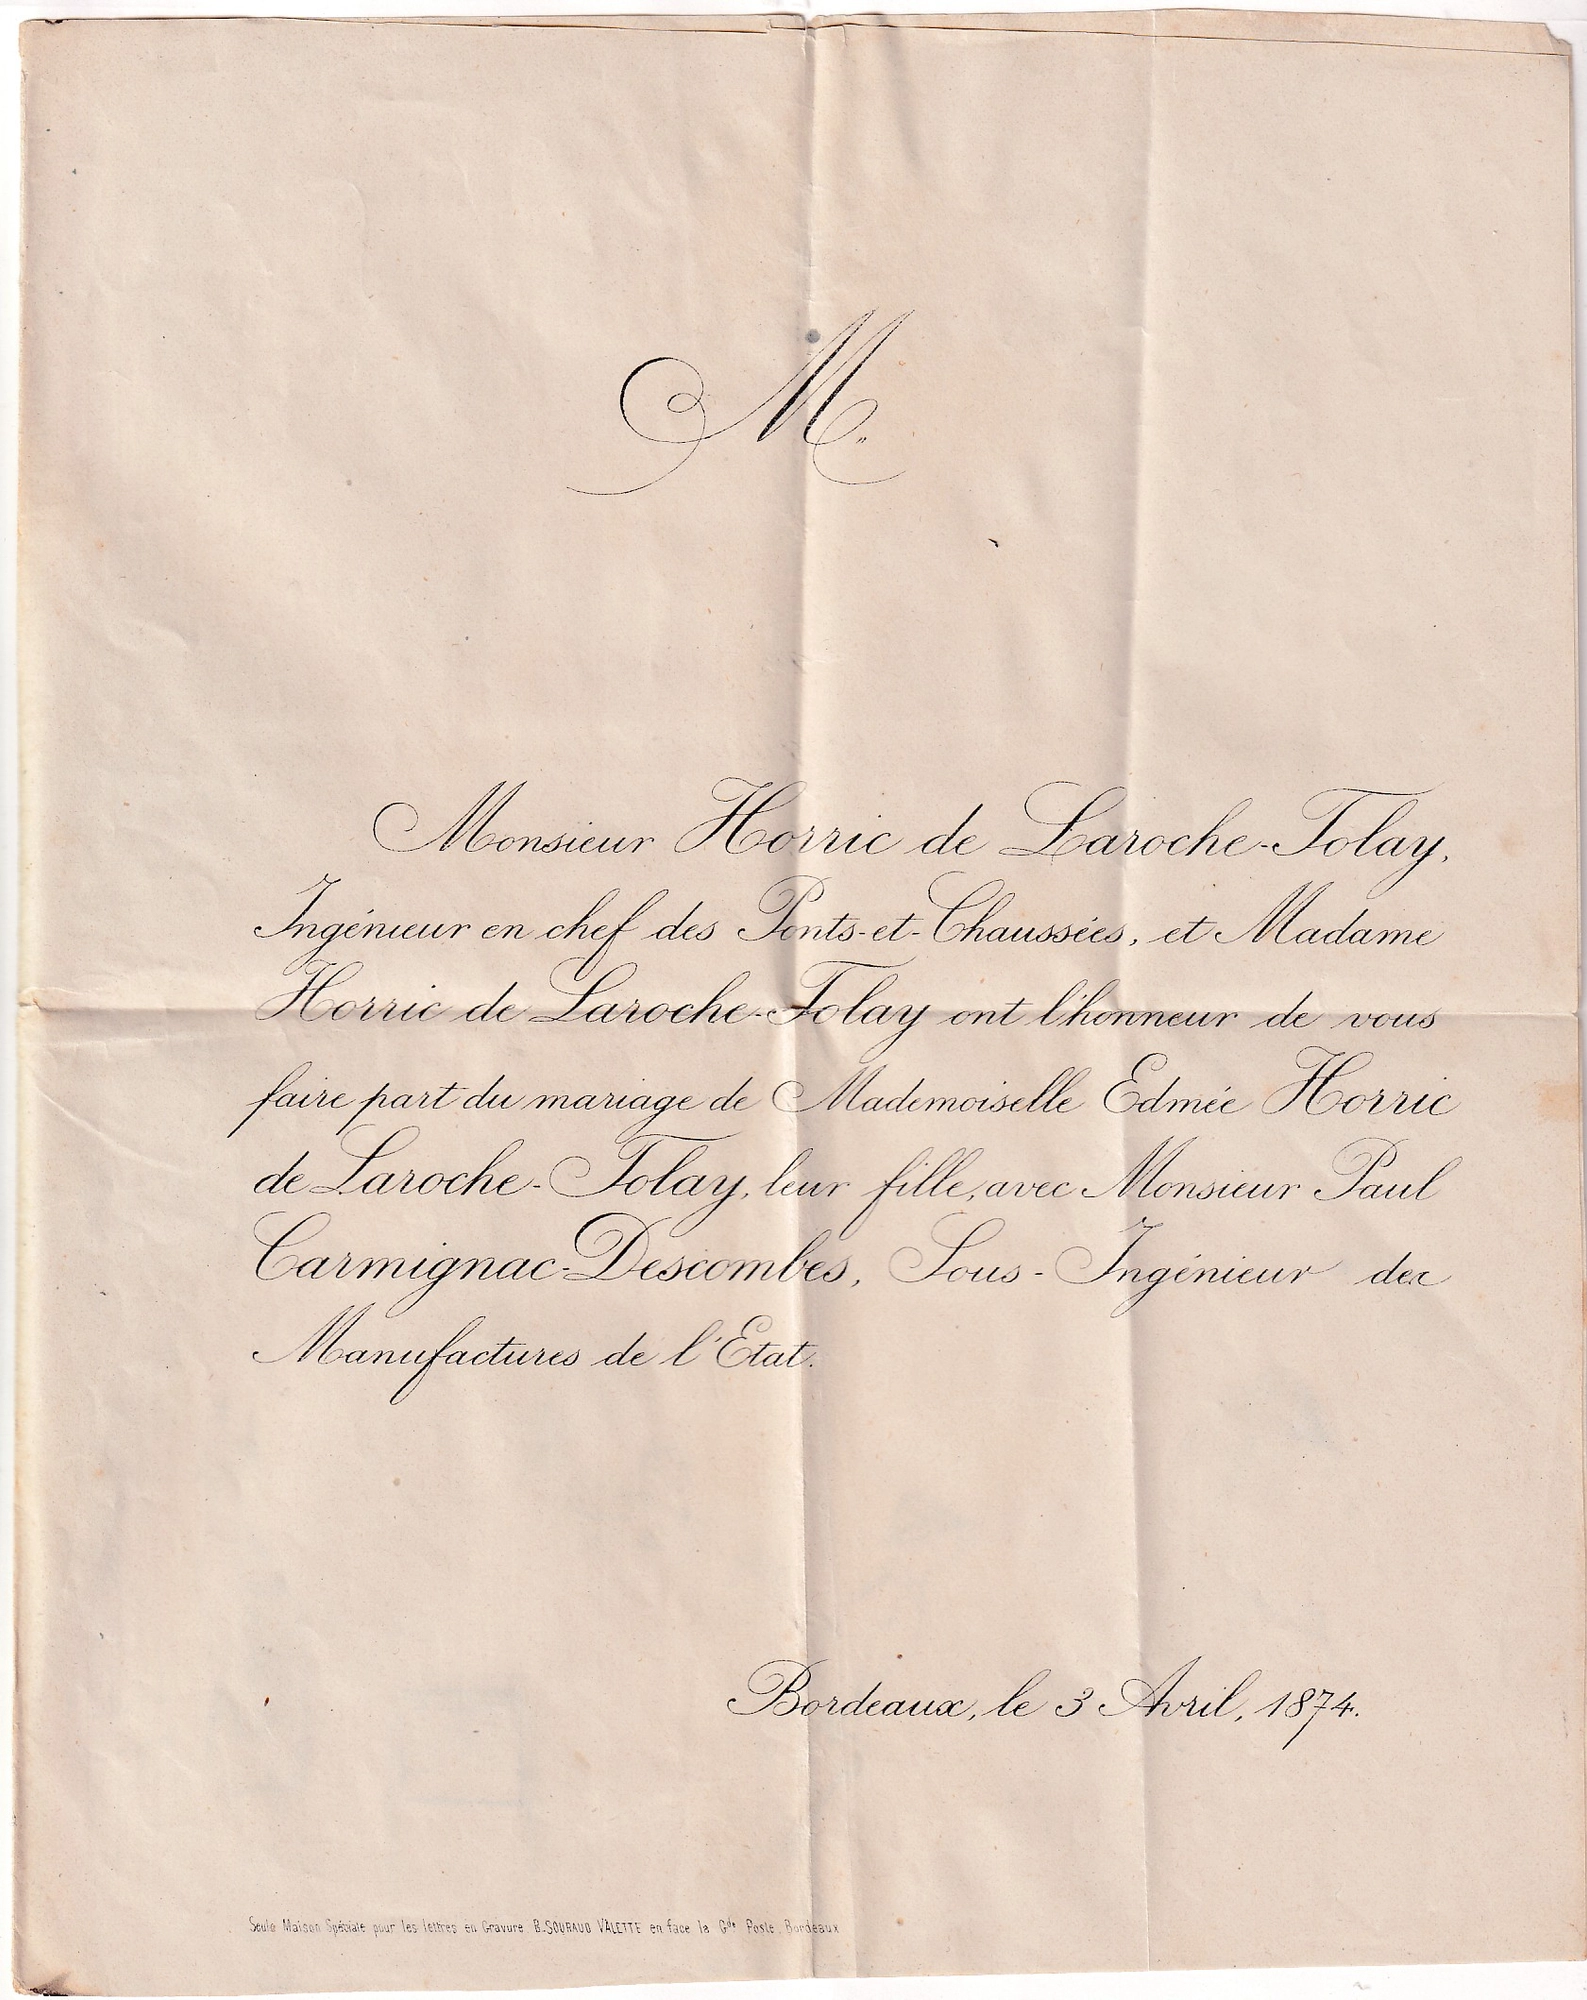 M.
Monsieur Horric de Laroche-Tolay,
Ingénieur en chef des Ponts-et-Chaussées, et Madame
Horric de Laroche-Tolay ont l'honneur de vous
faire part du mariage de Mademoiselle Edmée Horric
de Laroche-Tolay, leur fille, avec Monsieur Paul
Carmignac-Descombes, Sous-Ingénieur des
Manufactures de l'Etat.
Bordeaux, le 3 Avril, 1874.
Seule Maison Spéciale pour les lettres en Gravure B. SOURAUD VALETTE en face la Gde Poste. Bordeaux